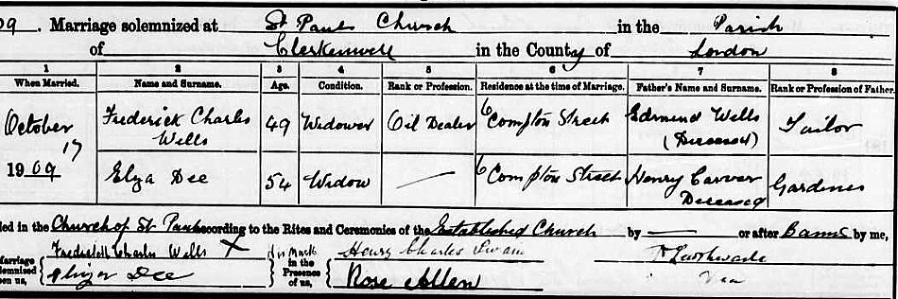 09. Marriage solemnized at St Pauls Church in the Parish
of Clerkenwell in the County of London
1 2 3 4 5 6 7 8
When Married. Name and Surname. Age. Condition. Rank or Profession. Residence at the time of Marriage. Father's Name and Surname. Rank or Profession of Father.
October 17 1909 Frederick Charles Wells 49 Widower Oil Dealer 6 Compton Street Edmund Wells (Deceased) Tailor
Elza Dee 54 Widow — 6 Compton Street Henry Carver Deceased Gardener
ied in the Church of St Pauls according to the Rites and Ceremonies of the Established Church by — or after Banns by me,
Marriage Frederick Charles Wells X his Mark in the Henry Charles Swain
lemnized Dee Presence
een us, of us, Rose Allen